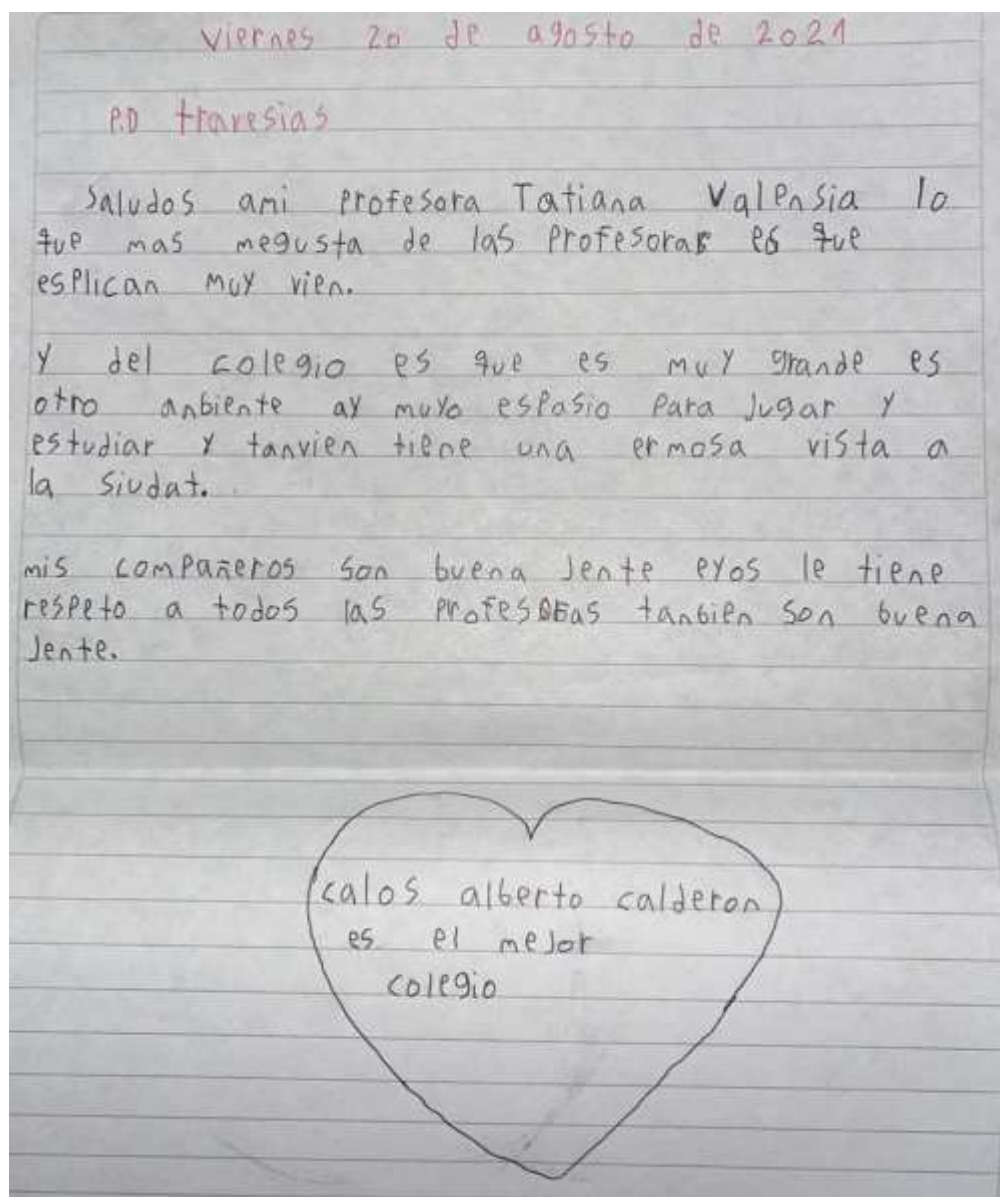 viernes 20 de agosto de 2021
P.D travesias
Saludos ami profesora Tatiana Valensia lo
que mas megusta de las profesoras es que
esplican muy vien.
y del colegio es que es muy grande es
otro anbiente ay muyo espasio para jugar y
estudiar y tanvien tiene una ermosa vista a
la siudat.
mis compañeros son buena jente eyos le tiene
respeto a todos las profesoras tanbien son buena
jente.
calos alberto calderon
es el mejor
colegio